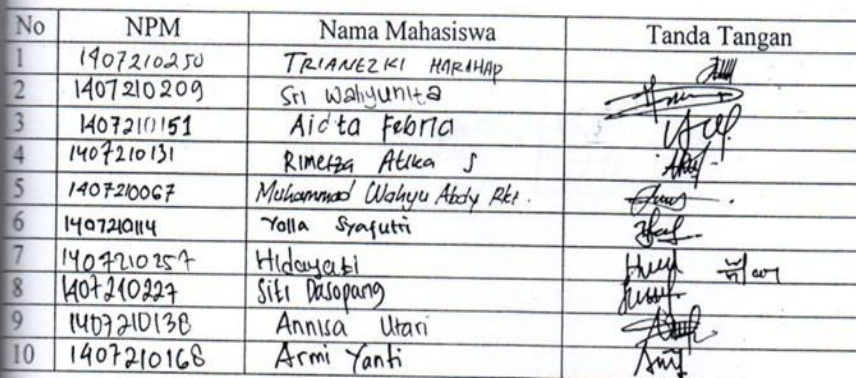 No NPM Nama Mahasiswa Tanda Tangan
1 1407210250 TRIANEZKI HARAHAP
2 1407210209 Sri Wahyunita
3 1407210151 Aidta Febria
4 1407210131 Rimetza Atika S
5 1407210067 Muhammad Wahyu Abdy Rkt.
6 1407210114 Yolla Syafutri
7 1407210257 Hidayati
8 1407210227 Siti Dasopang
9 1407210138 Annisa Utari
10 1407210168 Armi Yanti